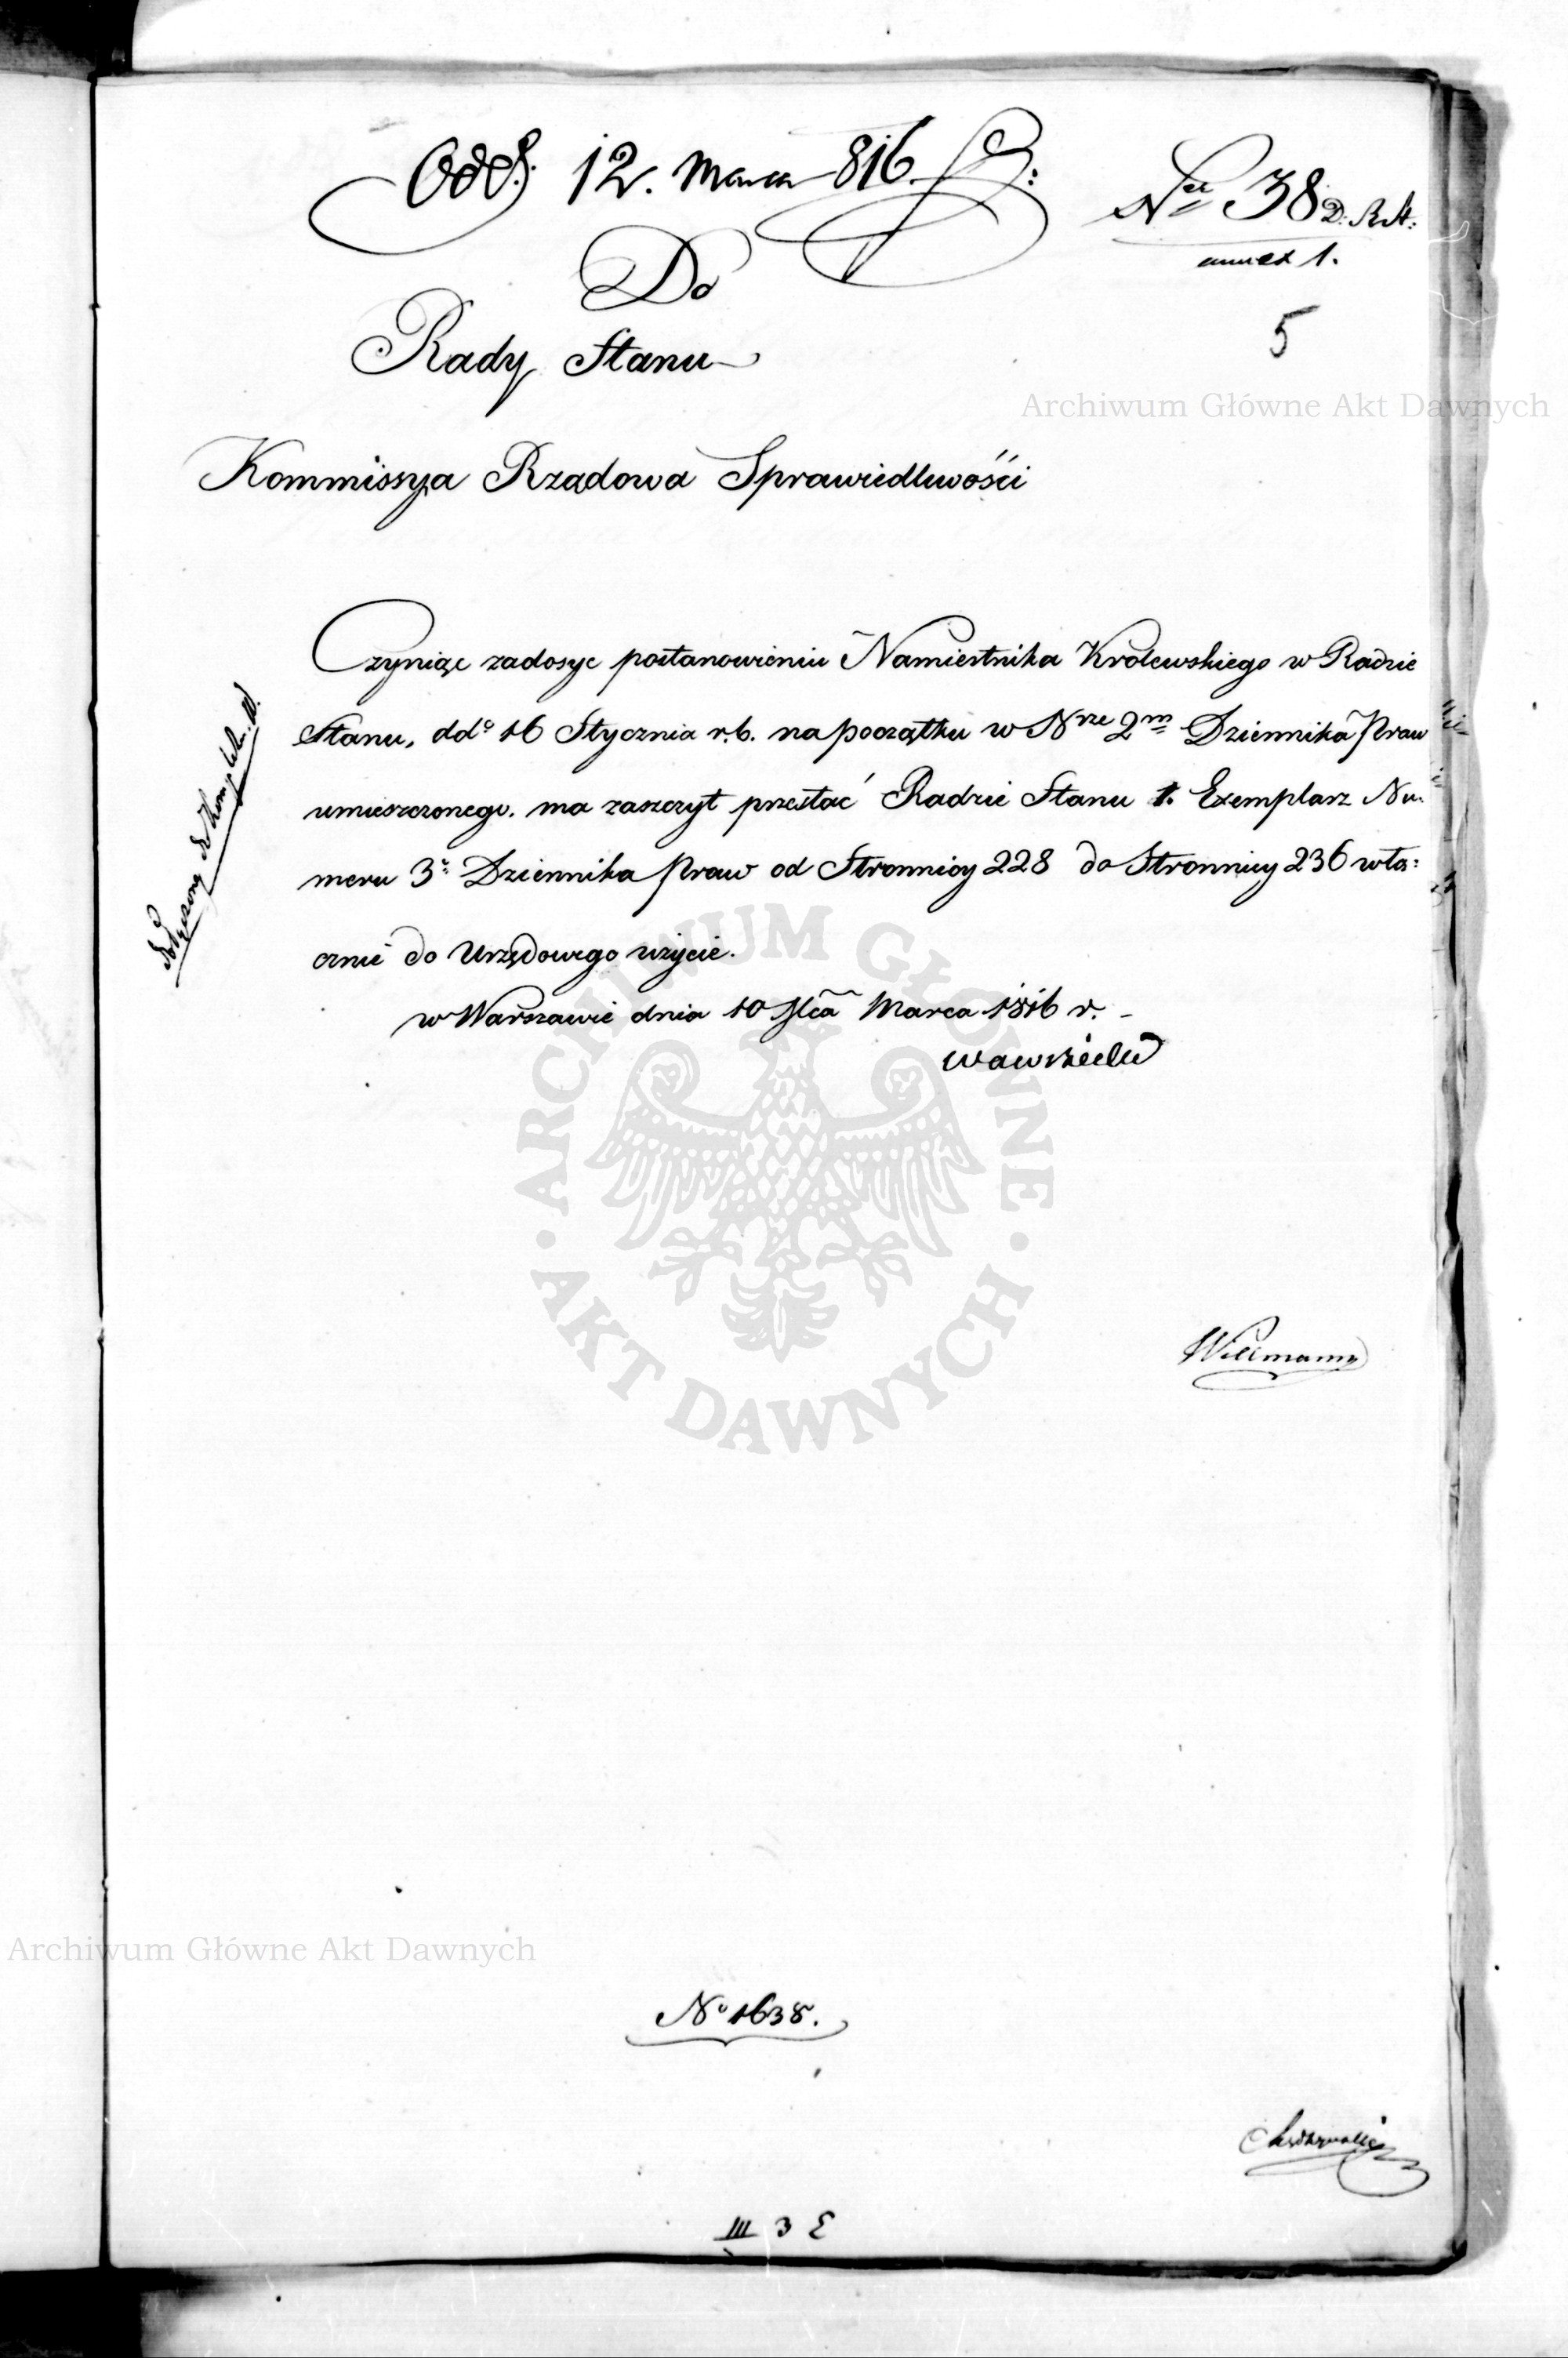 Odd. 12. Marca 816.
Ner 38 D. R. St:
annex 1.
5
Do
Rady Stanu
Archiwum Główne Akt Dawnych
Kommissya Rządowa Sprawiedliwości
Czyniąc zadosyc postanowieniu Namiestnika Królewskiego w Radzie
Stanu, ddo 16 Stycznia r. b. na początku w Nrze 2m Dziennika Praw
umieszczonego. ma zaszczyt przesłać Radzie Stanu 1. Exemplarz Nu-
meru 3o Dziennika Praw od Stronnicy 228 do Stronnicy 236 włą:
cznie do Urzędowego użycie.
w Warszawie dnia 10 Mca Marca 1816 r. -
Wawrzecki
ARCHIWUM GŁÓWNE · AKT DAWNYCH ·
Willmann
Archiwum Główne Akt Dawnych
No 1638.
III 3 E